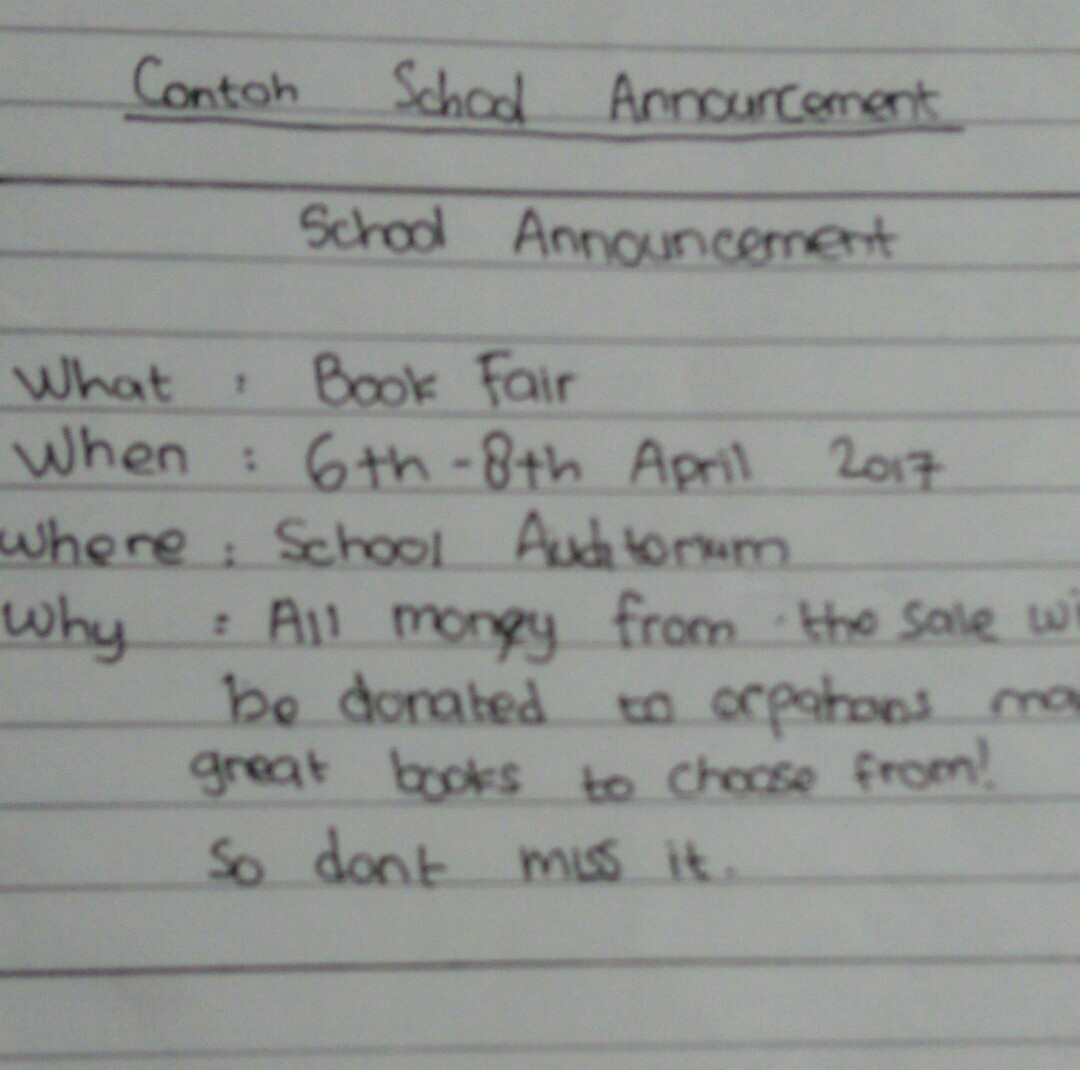 Contoh School Announcement
School Announcement
What : Book Fair
When : 6th - 8th April 2017
Where : School Auditorium
Why : All money from the sale wi
be donated to orpahans ma
great books to choose from!
So dont miss it.